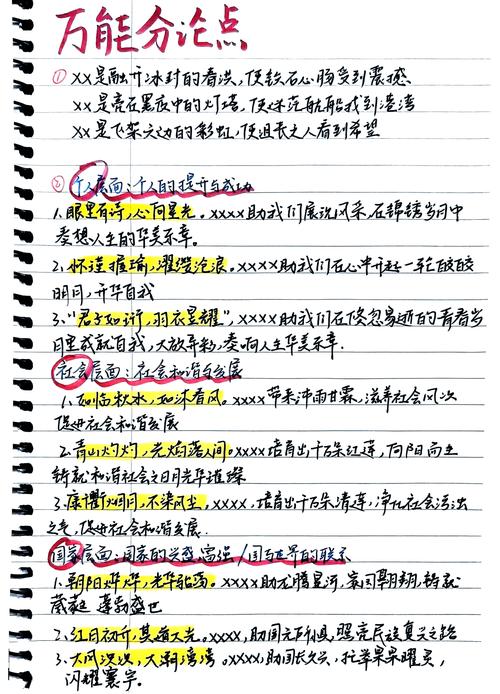 万能分论点
① XX是融开冰封的春洪,使铁石心肠受到震撼
XX是亮在黑夜中的灯塔,使迷茫航船找到港湾
XX是飞架天边的彩虹,使沮丧之人看到希望
② 个人层面:个人的提升与成功
1.眼里有诗,心向星光。xxxx助我们展现风采,在锦绣岁月中
奏想人生的华美乐章。
2.怀瑾握瑜,濯缨沧浪。xxxx助我们在心中升起一轮皎皎
明月,升华自我
3.“君子如沂,羽衣昱耀”,xxxx助我们在倏忽易逝的青春岁
月里成就自我,大放异彩,奏响人生华美乐章.
社会层面:社会和谐与发展
1.如临秋水,如沐春风。xxxx带来沛雨甘霖,滋养社会风
促进社会和谐发展
2.青山灼灼,光焰落人间。xxxx培育出千朵红莲,向阳而生
铸就和谐社会之日月光华璀璨
3.康衢烟月,不染风尘,xxxx,培育出千万朵清莲,净化社会污浊
之气,促进社会和谐发展.
国家层面:国家的兴盛富强/国与世界的联系
1.朝阳烨烨,光华骀荡。xxxx助龙腾星河,家国朝朝,铸就
葳蕤蓬勃盛世
2.红日初升,其道大光。xxxx,助国无所惧,照亮民族复兴之路
3.大风泱泱,大潮滂滂。xxxx,助国长久兴,扛苹果果曜灵,
闪耀寰宇。